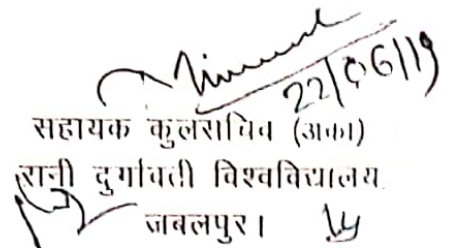 22/06/19
सहायक कुलसचिव (अका)
रानी दुर्गावती विश्वविद्यालय
जबलपुर।